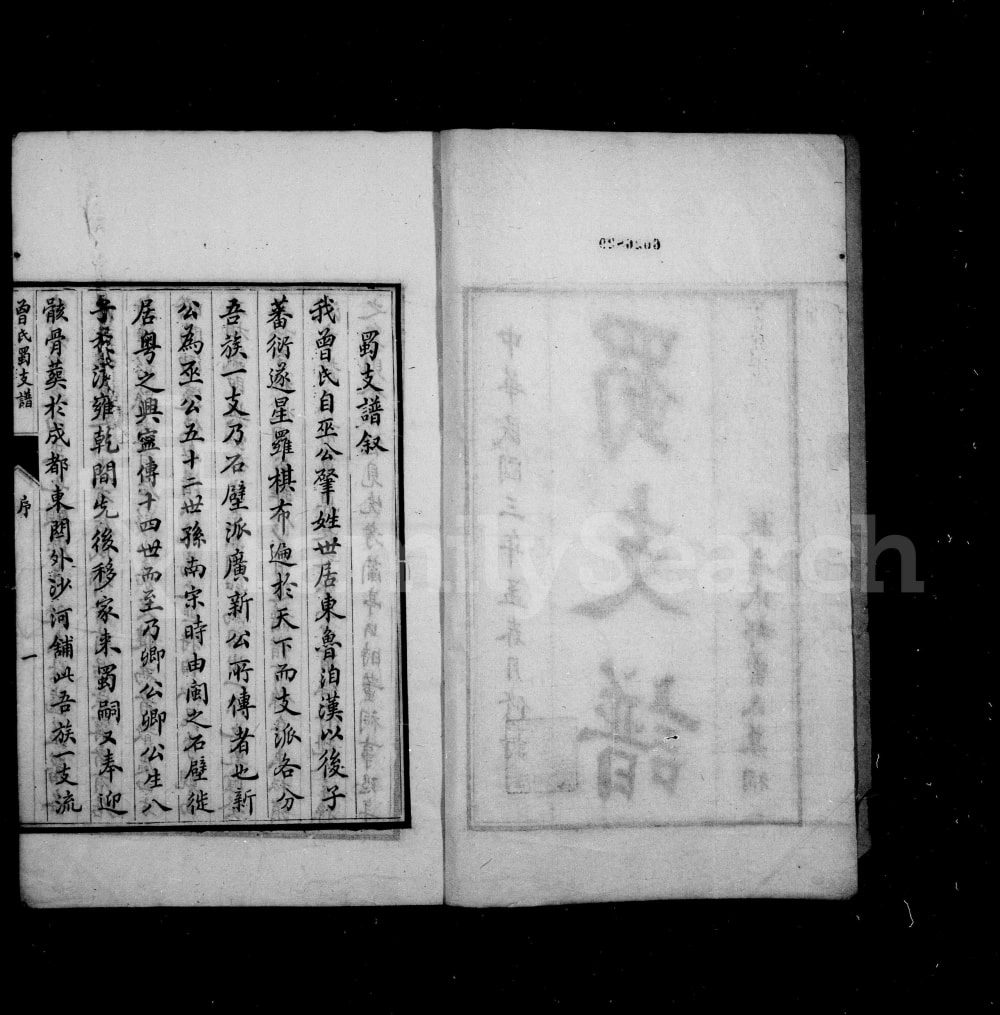 蜀支譜叙
我曾氏自巫公肇姓世居東魯洎漢以後子
蕃衍遂星羅棋布遍於天下而支派各分
吾族一支乃石壁派廣新公所傳者也新
公為巫公五十二世孫南宋時由閩之石壁徙
居粤之興寧傳十四世而至乃卿公卿公生八
子於雍乾間先後移家来蜀嗣又奉迎
骸骨葬於成都東関外沙河舖此吾族一支流
曾氏蜀支譜
序
一
蜀支譜
中華民國三年
FamilySearch